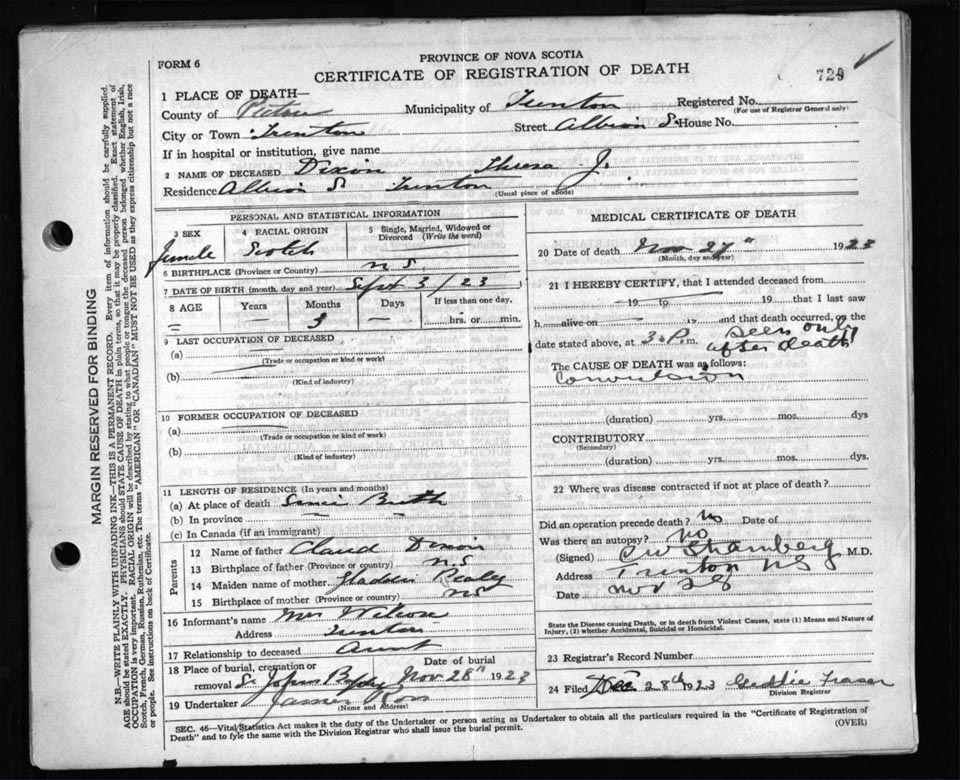 PROVINCE OF NOVA SCOTIA
FORM 6
CERTIFICATE OF REGISTRATION OF DEATH
729
1 PLACE OF DEATH—
County of Pictou Municipality of Trenton Registered No.
(For use of Registrar General only)
City or Town Trenton Street Albion St House No.
If in hospital or institution, give name
2 NAME OF DECEASED Dixon Theresa J.
Residence Albion St Trenton (Usual place of abode)
PERSONAL AND STATISTICAL INFORMATION
3 SEX 4 RACIAL ORIGIN 5 Single, Married, Widowed or Divorced (Write the word)
Female Scotch
6 BIRTHPLACE (Province or Country) N S.
7 DATE OF BIRTH (month, day and year) Sept 3 / 23
8 AGE Years Months Days If less than one day,
— — 3 — hrs. or min.
9 LAST OCCUPATION OF DECEASED
(a)
(Trade or occupation or kind of work)
(b)
(Kind of industry)
10 FORMER OCCUPATION OF DECEASED
(a)
(Trade or occupation or kind of work)
(b)
(Kind of industry)
11 LENGTH OF RESIDENCE (In years and months)
(a) At place of death Since Birth
(b) In province
(c) In Canada (if an immigrant)
Parents
12 Name of father Claud Dixon
13 Birthplace of father (Province or country) N.S
14 Maiden name of mother
15 Birthplace of mother (Province or country) NS
16 Informant's name Mrs
Address Trenton
17 Relationship to deceased Aunt
18 Place of burial, cremation or removal Date of burial
St Johns Nov 28" 1923
19 Undertaker James Ross
(Name and Address)
MEDICAL CERTIFICATE OF DEATH
20 Date of death Nov 27" 1923
(Month, day and year)
21 I HEREBY CERTIFY, that I attended deceased from
19 to 19 that I last saw
h alive on 19 and that death occurred, on the
date stated above, at 3 P.m. seen only after death
The CAUSE OF DEATH was as follows:
Convulsion
(duration) yrs. mos. dys
CONTRIBUTORY
(Secondary)
(duration) yrs. mos. dys.
22 Where was disease contracted if not at place of death?
Did an operation precede death? No Date of
Was there an autopsy? No
(Signed) M.D.
Address Trenton NS
Date Nov 28
State the Disease causing Death, or in death from Violent Causes, state (1) Means and Nature of
Injury, (2) whether Accidental, Suicidal or Homicidal.
23 Registrar's Record Number
24 Filed Dec 28th 1923 Fraser
Division Registrar
SEC. 46—Vital Statistics Act makes it the duty of the Undertaker or person acting as Undertaker to obtain all the particulars required in the "Certificate of Registration of
Death" and to fyle the same with the Division Registrar who shall issue the burial permit. (OVER)
MARGIN RESERVED FOR BINDING
N.B.—WRITE PLAINLY WITH UNFADING INK—THIS IS A PERMANENT RECORD. Every item of information should be carefully supplied.
AGE should be stated EXACTLY. PHYSICIANS should STATE CAUSE OF DEATH in plain terms, so that it may be properly classified. Exact statement of
OCCUPATION is very important. RACIAL ORIGIN will be described by stating to what people or tongue the deceased person belonged whether English, Irish,
Scotch, French, German, Russian, Ruthenian, etc. The terms "AMERICAN" OR "CANADIAN" MUST NOT BE USED as they express citizenship but not a race
or people. See instructions on back of Certificate.